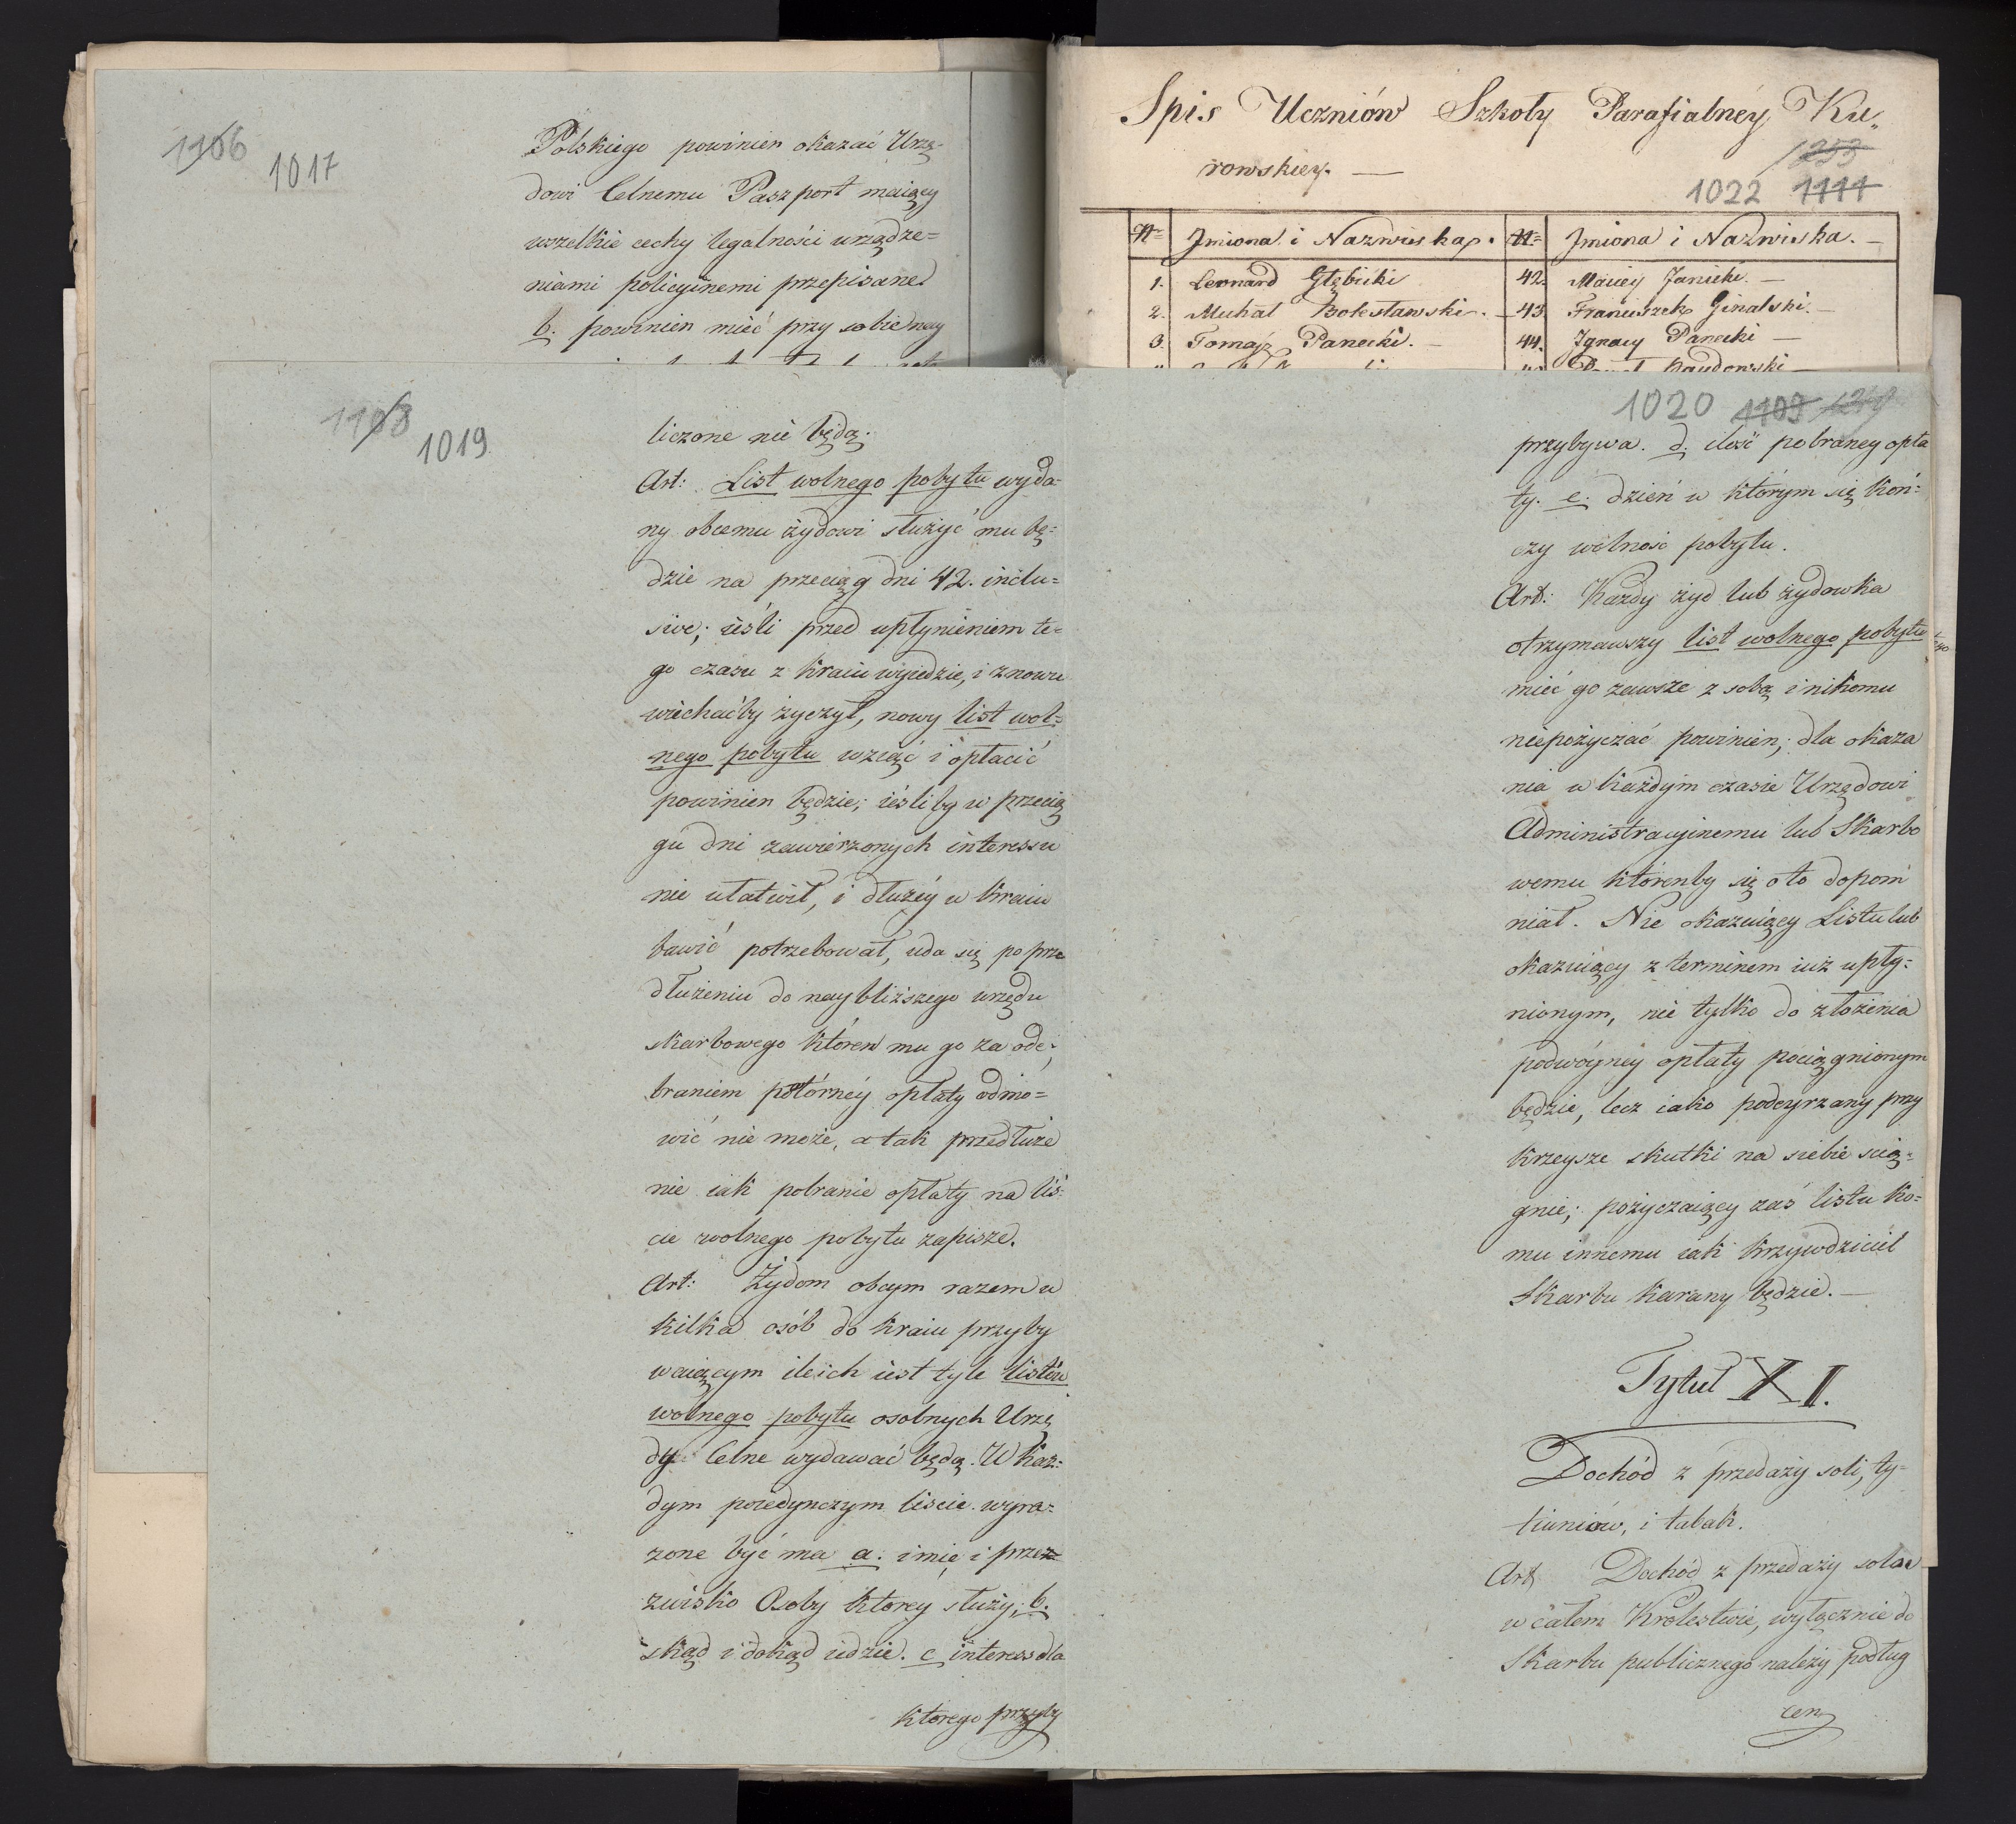 1106 1017
Polskiego powinien okazać Urzę-
dowi Celnemu Paszport maiący
wszelkie cechy legalności urządze=
niami policyinemi przepisane
b. powinien mieć przy sobie nay
Spis Uczniów Szkoły Parafialnéy Ku„
rowskiey. —
1253
1022 1111
Nº Jmiona i Nazwiska. Nº Jmiona i Nazwiska. —
1. Leonard Głębicki 42. Maciey Janicki. —
2. Michał Bolesławski. — 43. Franciszek Ginalski. —
3. Tomasz Panecki. — 44. Jgnacy Panecki —
1108 1019
liczone nie będą.
Art: List wolnego pobytu wyda-
ny obcemu żydowi służyć mu bę-
dzie na przeciąg dni 42. inclu=
sive; iésli przed upłynieniem te=
go czasu z kraiu wyiedzie, i znowu
wiechaćby życzył, nowy list wol=
nego pobytu wziąć i opłacić
powinien będzie; iésliby w przecią
gu dni zawierzonych interessu
nie ułatwił, i dłużéy w kraiu
bawić potrzebował, uda się po prze
dłużeniu do naybliższego urzędu
skarbowego któren mu go za ode-
braniem potórnéy opłaty odmo=
wić nie może, a tak przedłuże
nie iak pobranie opłaty na liś-
cie wolnego pobytu zapisze.
Art: Żydom obcym razem w
kilka osób do kraiu przyby
waiącym ile ich iest tyle listów
wolnego pobytu osobnych Urzę
dy Celne wydawać będą. W każ-
dym poiedynczym liscie wyra-
żone być ma a. imię i prze=
zwisko Osoby ktorey służy; b.
skąd i dokąd idzie. c interess dla
ktorego przyby
1020 1109
przybywa. d. ilość pobraney opła
ty. e. dzień w którym się koń-
czy wolność pobytu.
Art: Każdy żyd lub żydowka
otrzymawszy list wolnego pobytu
mieć go zawsze z sobą i nikomu
niepożyczać powinien; dla okaza
nia w każdym czasie Urzędowi
Administracyinemu lub Skarbo
wemu którenby się o to dopom
niał. Nie okazuiący Listu lub
okazuiący z terminem iuż upły-
nionym, nie tylko do złożenia
podwóyney opłaty pociągnionym
będzie, lecz iako podeyrzany przy
krzeysze skutki na siebie ścią-
gnie; pożyczaiący zaś listu ko=
mu innemu iak krzywdziciel
Skarbu karany będzie. —
Tytuł XI.
Dochód z przedaży soli, ty-
tiuniów, i tabak.
Art Dochód z przedaży soli
w całem Krolestwie, wyłącznie do
Skarbu publicznego należy podług
cen